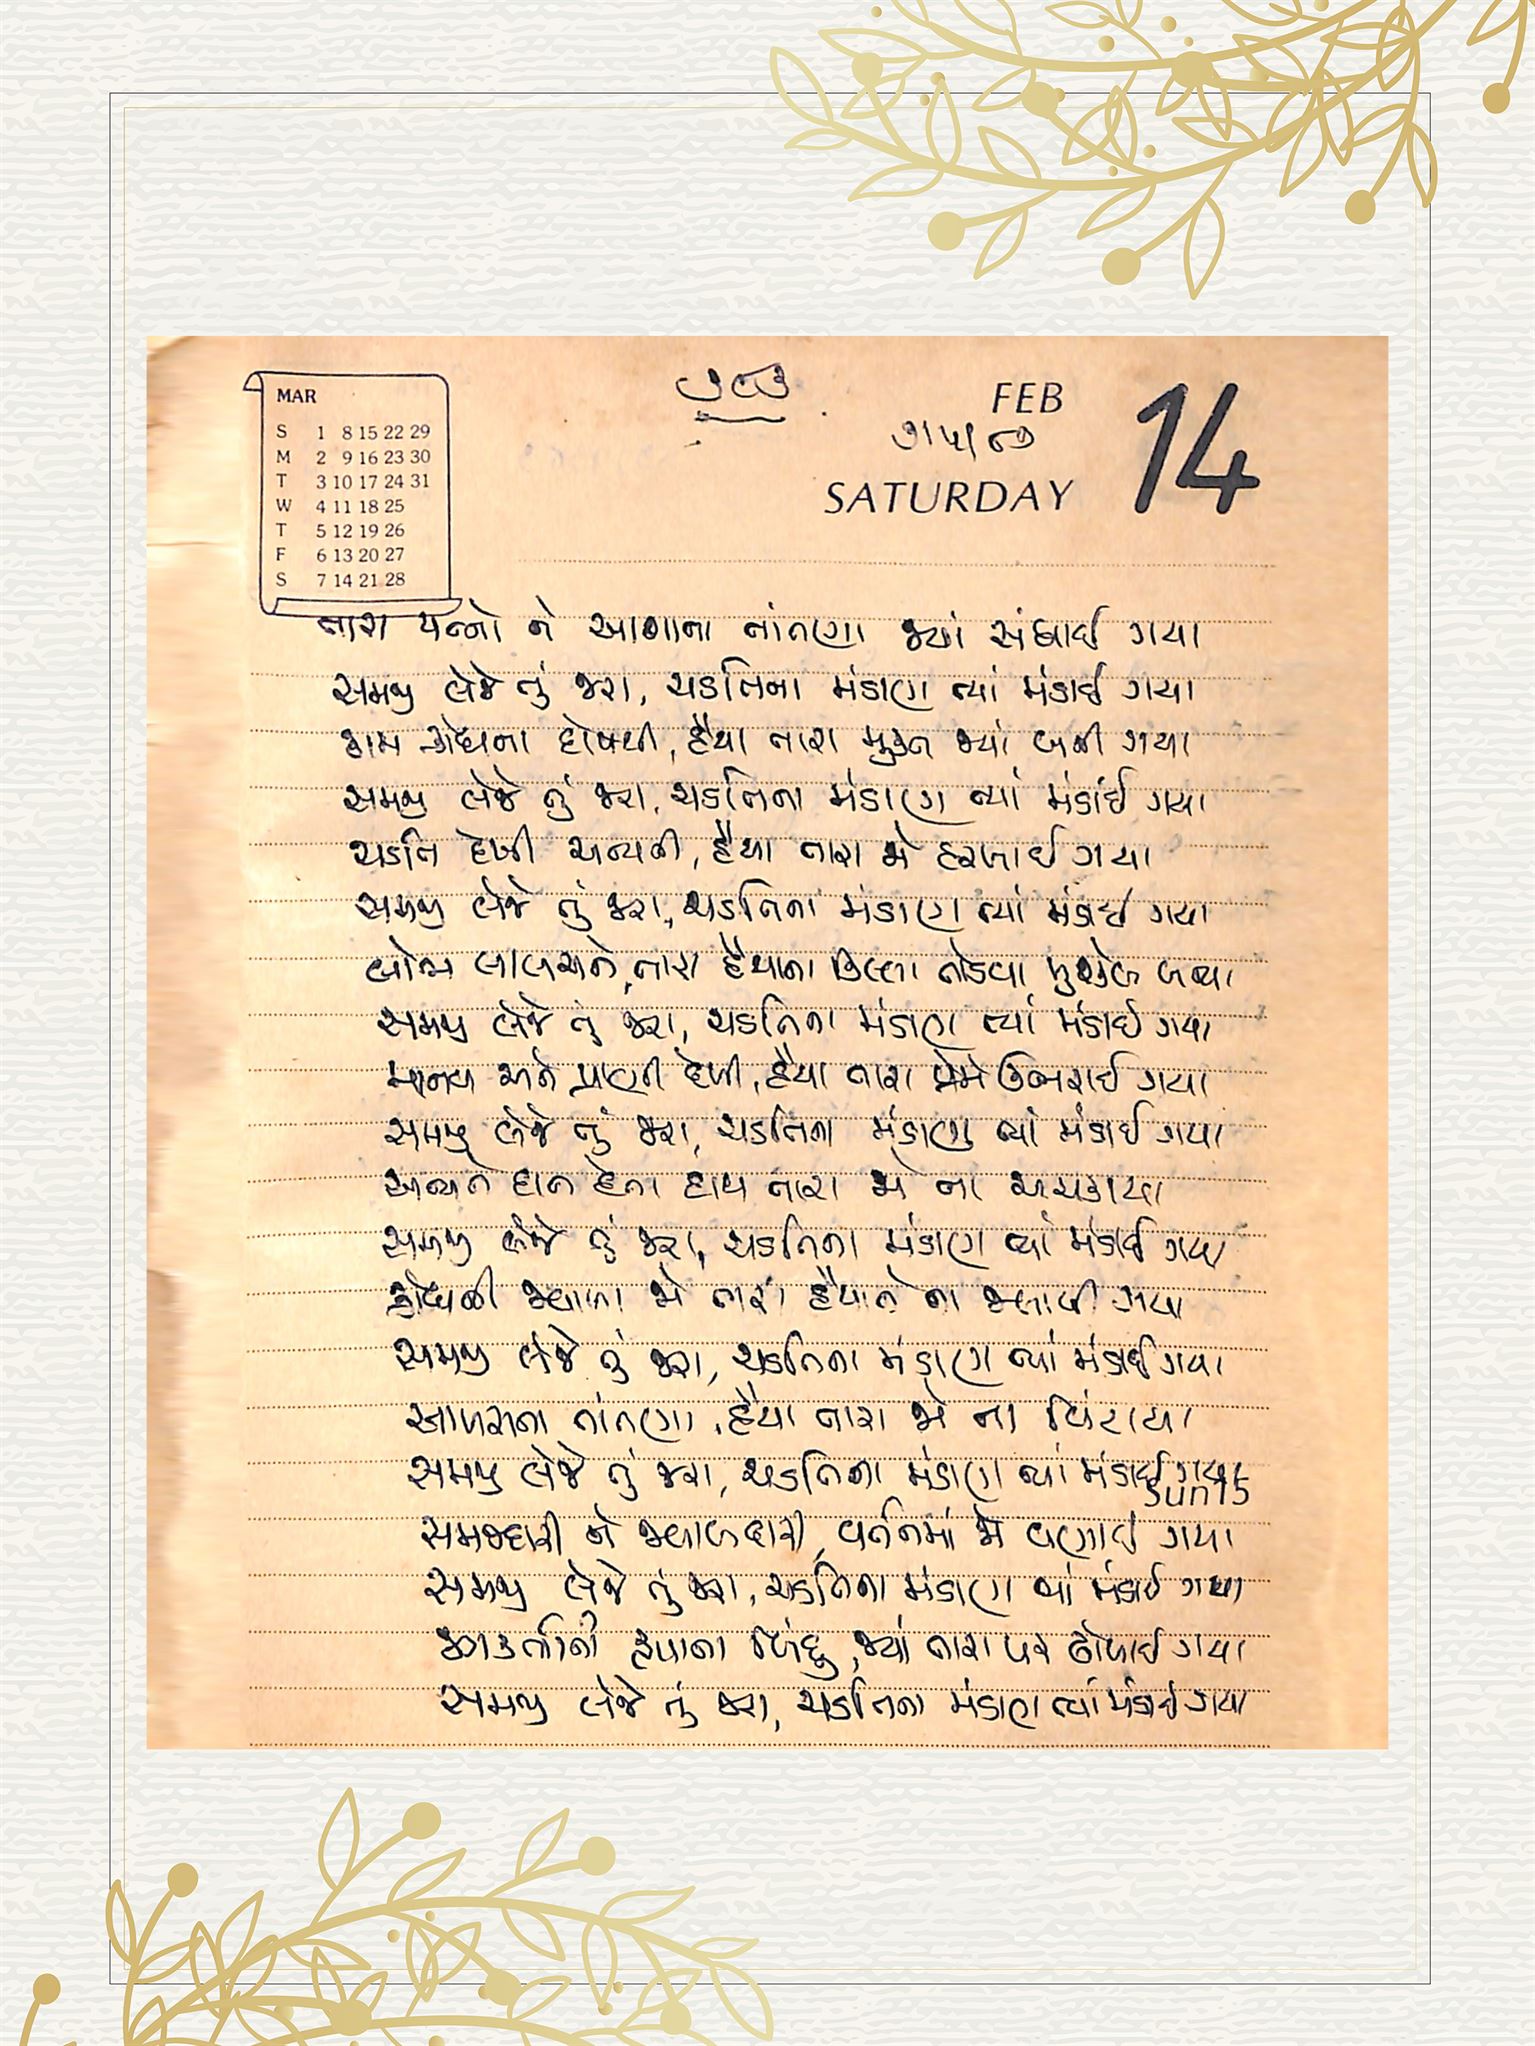 MAR
S 1 8 15 22 29
M 2 9 16 23 30
T 3 10 17 24 31
W 4 11 18 25
T 5 12 19 26
F 6 13 20 27
S 7 14 21 28
FEB 14
૭/૫/૮૭
SATURDAY
તારા યત્નો ને આશાના તાંતણા જ્યાં સંધાઈ ગયા
સમજી લેજે તું જરા, ચડતિના મંડાણ ત્યાં મંડાઈ ગયા
કામ ક્રોધના દોષથી, હૈયા તારા મુક્ત જ્યાં બની ગયા
સમજી લેજે તું જરા, ચડતિના મંડાણ ત્યાં મંડાઈ ગયા
ચડતિ દેખી અન્યની, હૈયા તારા જો હરખાઈ ગયા
સમજી લેજે તું જરા, ચડતિના મંડાણ ત્યાં મંડાઈ ગયા
લોભ લાલચને, તારા હૈયાના કિલ્લા તોડવા મુશ્કેલ બન્યા
સમજી લેજે તું જરા, ચડતિના મંડાણ ત્યાં મંડાઈ ગયા
માનવ અને પ્રાણી દેખી, હૈયા તારા પ્રેમે ઉભરાઈ ગયા
સમજી લેજે તું જરા, ચડતિના મંડાણ ત્યાં મંડાઈ ગયા
અન્યને દાન દેતા હાથ તારા જો ના અચકાયા
સમજી લેજે તું જરા, ચડતિના મંડાણ ત્યાં મંડાઈ ગયા
ક્રોધની જ્વાળા જો તારા હૈયાને ના જલાવી ગયા
સમજી લેજે તું જરા, ચડતિના મંડાણ ત્યાં મંડાઈ ગયા
આળસના તાંતણા, હૈયા તારા જો ના વિંટાયા
સમજી લેજે તું જરા, ચડતિના મંડાણ ત્યાં મંડાઈ ગયા
Sun 15
સમજદારી ને જવાબદારી, વર્તનમાં જો વણાઈ ગયા
સમજી લેજે તું જરા, ચડતિના મંડાણ ત્યાં મંડાઈ ગયા
જગકર્તાની કૃપાના બિંદુ, જ્યાં તારા પર ઢોળાઈ ગયા
સમજી લેજે તું જરા, ચડતિના મંડાણ ત્યાં મંડાઈ ગયા